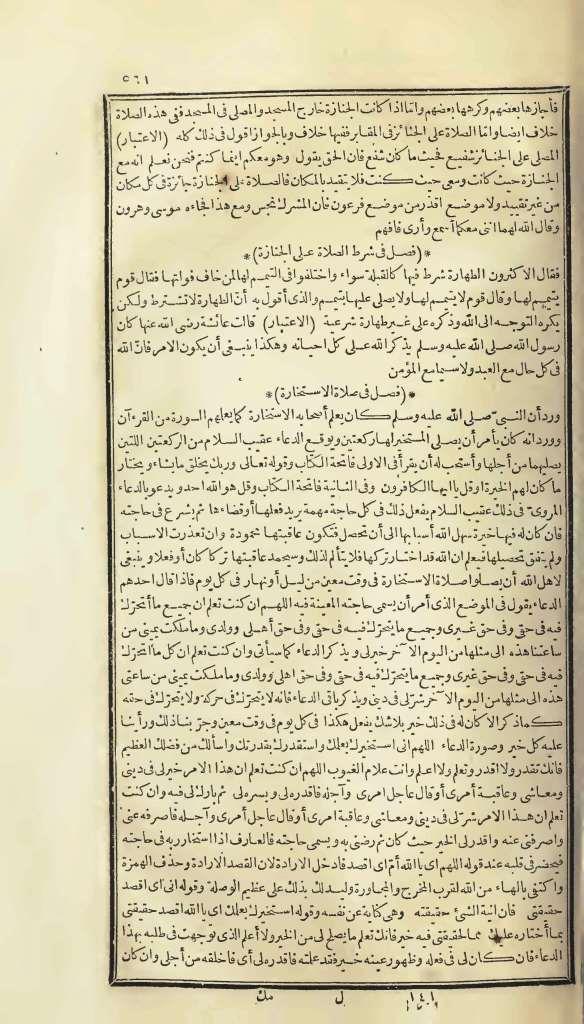 ٥٦١
فأجازها بعضهم وكرهها بعضهم وأما اذا كانت الجنازة خارج المسجد والمصلى فى المسجد ففى هذه الصلاة
خلاف أيضا وأما الصلاة على الجنائز فى المقابر ففيها خلاف وبالجواز أقول فى ذلك كله (الاعتبار)
المصلى على الجنائز شفيع فحيث ما كان شفع فان الحق يقول وهو معكم أينما كنتم فنحن نعلم انه مع
الجنازة حيث كانت ومعى حيث كنت فلا يتقيد بالمكان فالصلاة على الجنازة جائزة فى كل مكان
من غير تقييد ولا موضع اقذر من موضع فرعون فان المشرك نجس ومع هذا فجاءه موسى وهرون
وقال الله لهما اننى معكما أسمع وأرى فافهم
*(فصل فى شرط الصلاة على الجنازة)*
فقال الاكثرون الطهارة شرط فيها كالقبلة سواء واختلفوا فى التيمم لها لمن خاف فواتها فقال قوم
يتيمم لها وقال قوم لا يتيمم لها ولا يصلى عليها بتيمم والذى أقول به أن الطهارة لا تشترط ولكن
يكره التوجه الى الله وذكره على غير طهارة شرعية (الاعتبار) قالت عائشة رضى الله عنها كان
رسول الله صلى الله عليه وسلم يذكر الله على كل احيانه وهكذا ينبغى أن يكون الامر فان الله
فى كل حال مع العبد ولا سيما مع المؤمن
*(فصل فى صلاة الاستخارة)*
ورد أن النبى صلى الله عليه وسلم كان يعلم أصحابه الاستخارة كما يعلمهم السورة من القرءآن
وورد انه كان يأمر أن يصلى المستخير لها ركعتين ويوقع الدعاء عقيب السلام من الركعتين اللتين
يصليهما من أجلها وأستحب له أن يقرأ فى الاولى فاتحة الكتاب وقوله تعالى وربك يخلق ما يشاء ويختار
ما كان لهم الخيرة وقل ياايها الكافرون وفى الثانية فاتحة الكتاب وقل هو الله احد ويدعو بالدعاء
المروى فى ذلك عقيب السلام يفعل ذلك فى كل حاجة مهمة يريد فعلها أو قضاءها ثم يشرع فى حاجته
فان كان له فيها خيرة سهل الله أسبابها الى أن تحصل فتكون عاقبتها محمودة وان تعذرت الاسباب
ولم يتفق تحصيلها فيعلم ان الله قد اختار تركها فلا يتألم لذلك وسيحمد عاقبتها تركا كان أو فعلا وينبغى
لاهل الله أن يصلوا صلاة الاستخارة فى وقت معين من ليل أو نهار فى كل يوم فاذا قال احدهم
الدعاء يقول فى الموضع الذى أمر أن يسمى حاجته المعينة فيه اللهم ان كنت تعلم ان جميع ما أتحرك
فيه فى حقى وفى حق غيرى وجميع ما يتحرك فيه فى حقى وفى حق أهلى وولدى وما ملكت يمينى من
ساعتنا هذه الى مثلها من اليوم الآخر خير لى ويذكر الدعاء كما سيأتى وان كنت تعلم ان كل ما أتحرك
فيه فى حقى وفى حق غيرى وجميع ما يتحرك فيه فى حقى وفى حق اهلى وولدى وما ملكت يمينى من ساعتى
هذه الى مثلها من اليوم الآخر شر لى فى دينى ويذكر باقى الدعاء فانه لا يتحرك فى حركة ولا يتحرك فى حقه
كما ذكر الا كان له فى ذلك خير بلا شك يفعل هكذا فى كل يوم فى وقت معين وجربنا ذلك ورأينا
عليه كل خير وصورة الدعاء اللهم انى استخيرك بعلمك واستقدرك بقدرتك واسألك من فضلك العظيم
فانك تقدر ولا اقدر وتعلم ولا اعلم وانت علام الغيوب اللهم ان كنت تعلم ان هذا الامر خير لى فى دينى
ومعاشى وعاقبة أمرى أو قال عاجل امرى وآجله فاقدره لى ويسره لى ثم بارك لى فيه وان كنت
تعلم ان هذا الامر شر لى فى دينى ومعاشى وعاقبة امرى أو قال عاجل أمرى وآجله فاصرفه عنى
واصرفنى عنه واقدر لى الخير حيث كان ثم رضنى به ويسمى حاجته فالعارف اذا استخار ربه فى حاجته
فيحضر فى قلبه عند قوله اللهم اى يا الله أم اى اقصد فادخل الارادة لان القصد الارادة وحذف الهمزة
واكتفى بالهاء من الله لقرب المخرج والمجاورة وليدلك بذلك على عظيم الوصلة وقوله انى أى اقصد
حقيقتى فان انية الشئ حقيقته وهى كناية عن نفسه وقوله استخيرك بعلمك أى يا الله اقصد حقيقتى
بما أختاره عليك مما لحقيقتى فيه خير فانك تعلم ما يصلح لى من الخير ولا أعلم الذى توجهت فى طلبه بهذا
الدعاء فان كان لى فى فعله وظهور عينه خير فقد علمته فاقدره لى أى فاخلقه من أجلى وان كان
ل مك